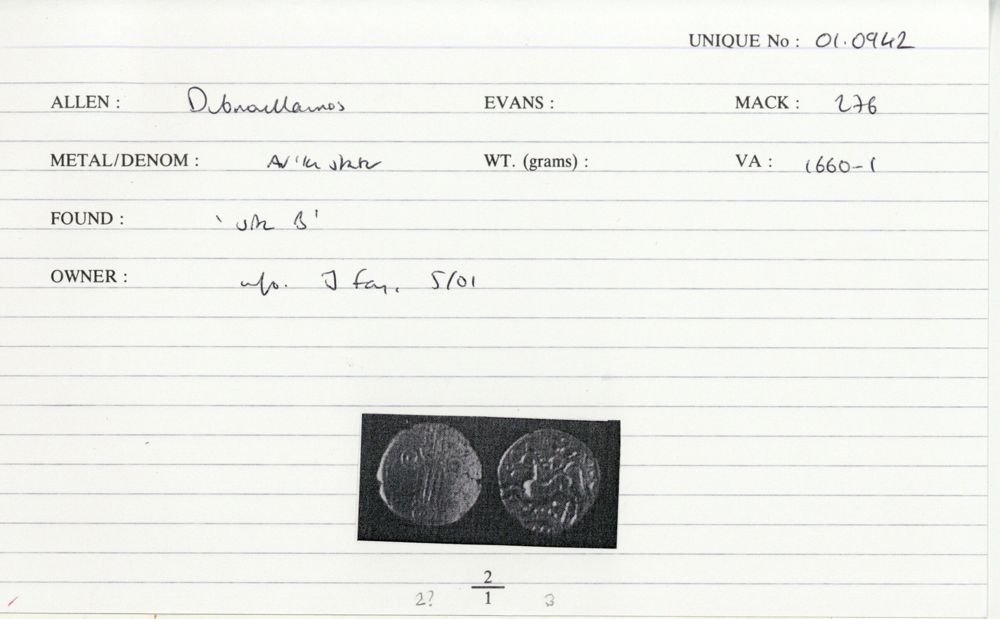 UNIQUE No : 01.0942
ALLEN : Dubnovellaunos EVANS : MACK : 276
METAL/DENOM : WT. (grams) : VA : 1660-1
FOUND : 'site B'
OWNER : info. J 5/01
2
2? 1 3